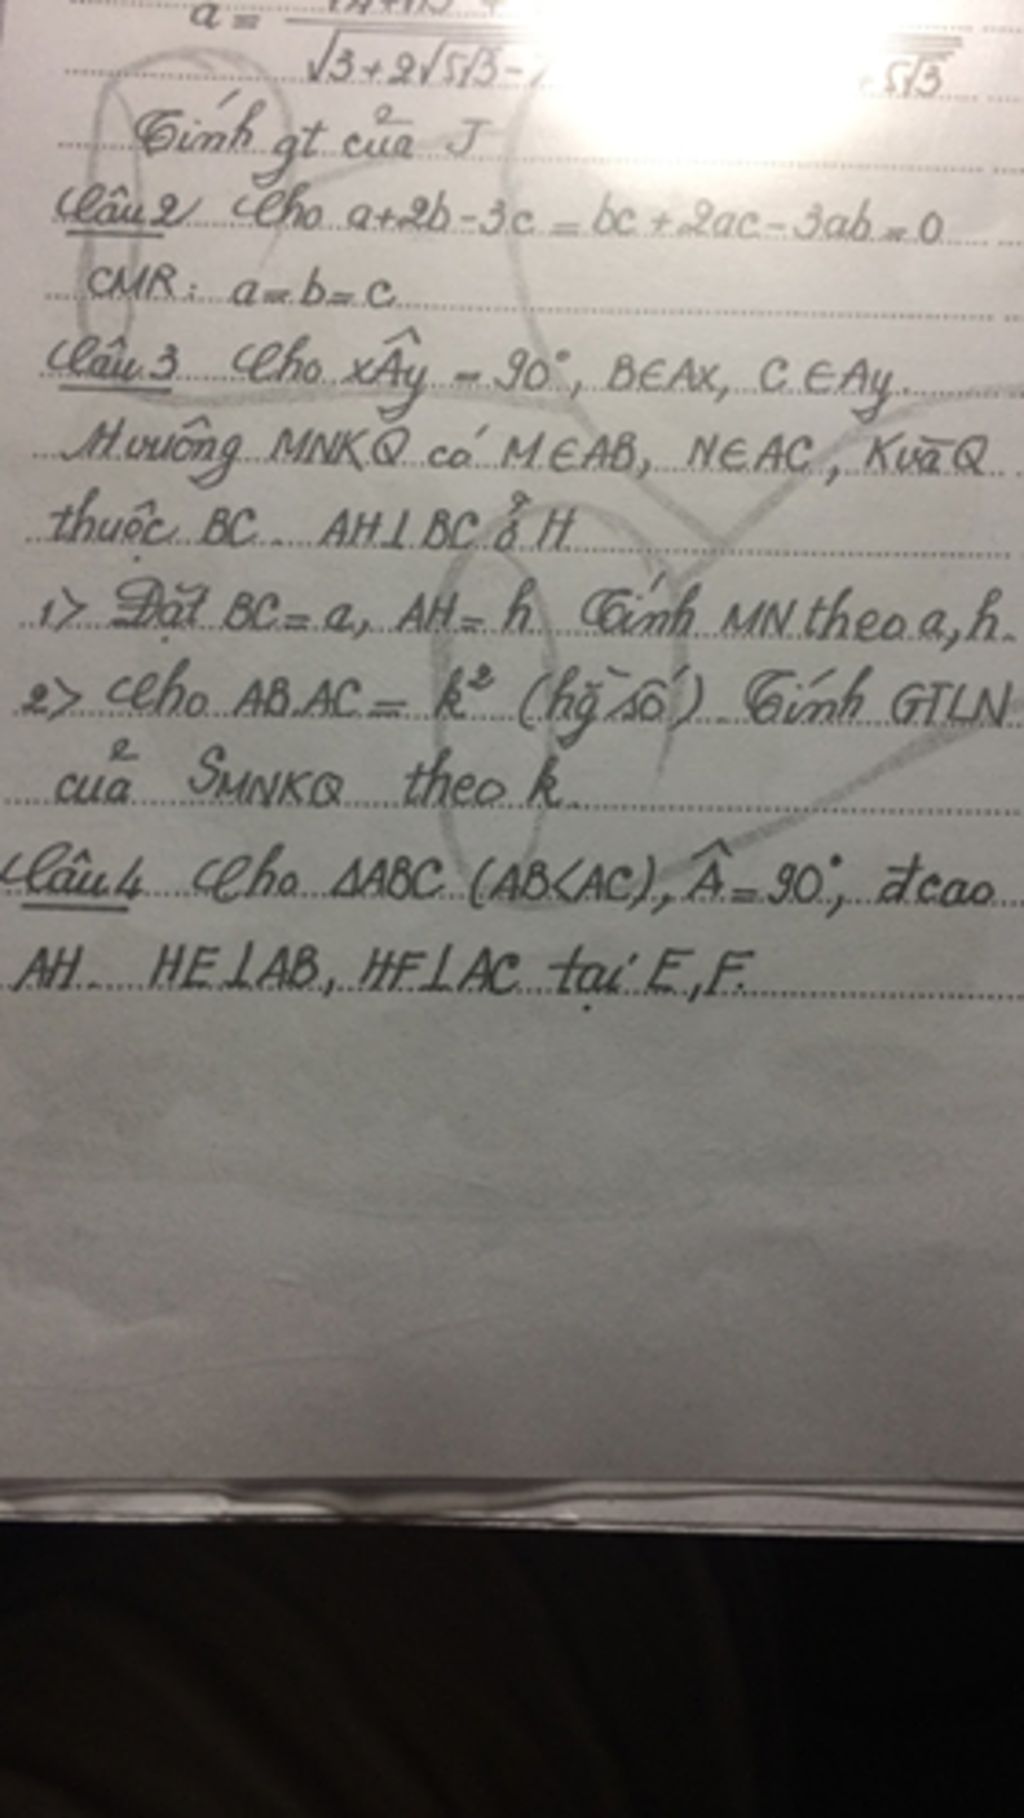 a =
√3+2√5√3-
5√3
Tính gt của J
Câu 2 Cho a+2b-3c = bc+2ac-3ab = 0
CMR: a=b=c
Câu 3 Cho xÂy = 90°, B∈Ax, C∈Ay.
Hvuông MNKQ có M∈AB, N∈AC, K và Q
thuộc BC. AH⊥BC ở H
1> Đặt BC=a, AH=h Tính MN theo a,h.
2> Cho AB.AC = k² (hg số) Tính GTLN
của SMNKQ theo k.
Câu 4 Cho ΔABC (AB<AC), Â=90°, đcao
AH. HE⊥AB, HF⊥AC tại E,F.